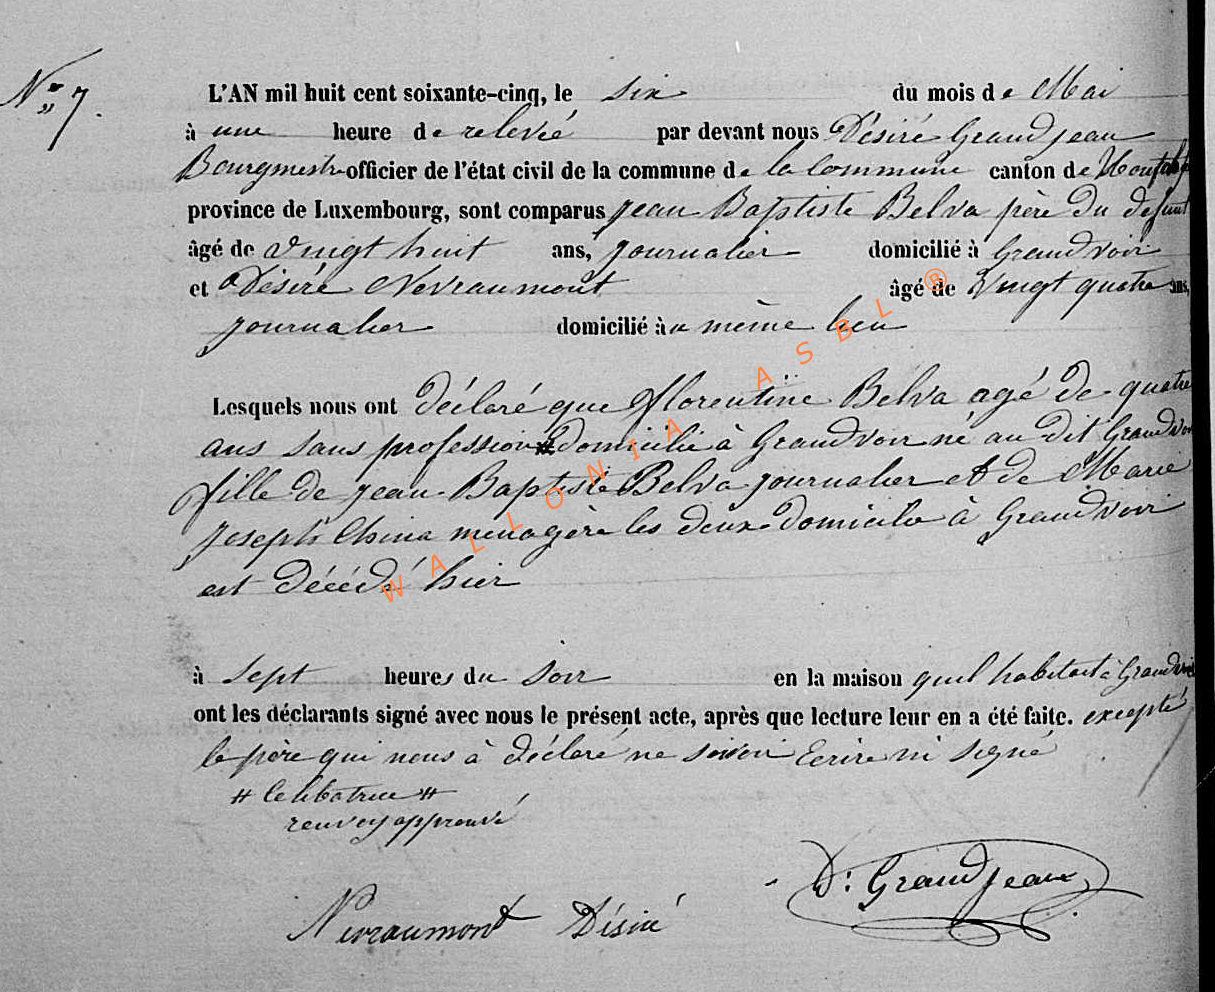 N° 7.
L'AN mil huit cent soixante-cinq, le six du mois de Mai
à une heure de relevée par devant nous Désiré Grandjean
Bourgmestre officier de l'état civil de la commune de la Commune canton de
province de Luxembourg, sont comparus Jean Baptiste Belva père du defunt
âgé de vingt huit ans, journalier domicilié à Grandvoir
et Désiré Nevraumont âgé de Vingt quatre ans,
journalier domicilié au même lieu
Lesquels nous ont déclaré que florentine Belva agé de quatre
ans sans profession # domicilié à Grandvoir né au dit Grandvoir
fille de Jean Baptiste Belva journalier et de Marie
Joseph China menagère les deux domicilié à Grandvoir
est décédé hier
à sept heures du soir en la maison quel habitait à Grandvoir
ont les déclarants signé avec nous le présent acte, après que lecture leur en a été faite. excepté
le père qui nous à déclaré ne savoir Ecrire ni signé
# Celibatrice #
renvoy approuvé
D: Grandjean
Nevraumont Désiré
WALLONIA ASBL ®